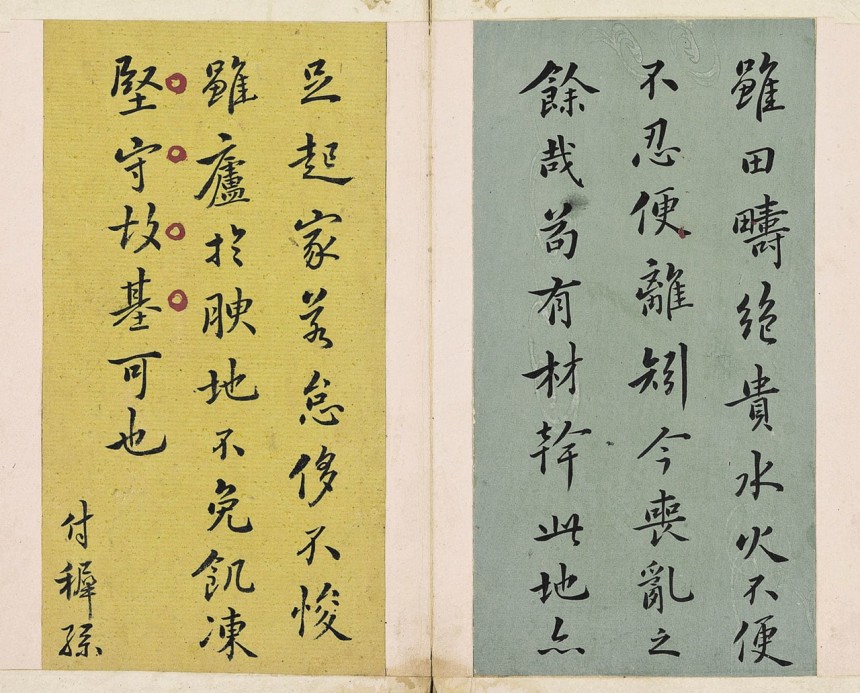 雖田疇絶貴水火不便
不忍便離矧今喪亂之
餘哉苟有材幹此地亦
足起家若怠侈不悛
雖廬於腴地不免飢凍
堅守故基可也
付稺孫